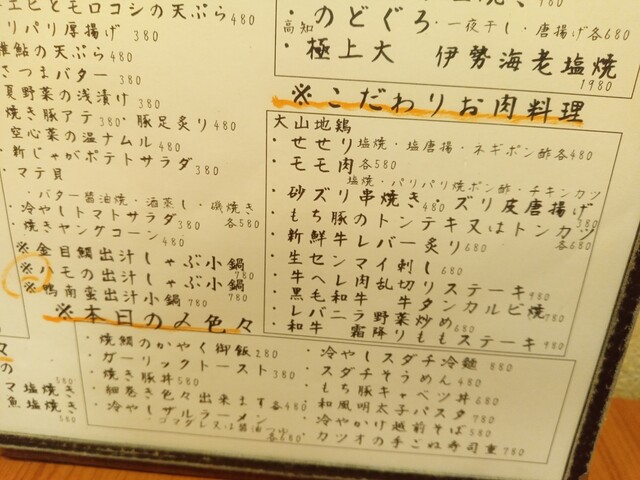 エビとモロコシの天ぷら 480
パリパリ厚揚げ 380
稚鮎の天ぷら 480
さつまバター 380
夏野菜の浅漬け 380
焼き豚アテ 380 豚足炙り 480
空心菜の温ナムル 480
・新じゃがポテトサラダ 380
・マテ貝
・バター醤油焼・酒蒸し・磯焼き 各580
・冷やしトマトサラダ 380
・焼きヤングコーン 480
※金目鯛出汁しゃぶ小鍋
※ハモの出汁しゃぶ小鍋 780
※鴨南蛮出汁小鍋 780
・のどぐろ 一夜干し・唐揚げ 各680
高知
・極上大 伊勢海老塩焼 1980
※こだわりお肉料理
大山地鶏
・せせり 塩焼・塩唐揚・ネギポン酢 各480
・モモ肉 各580
塩焼・パリパリ焼ポン酢・チキンカツ
・砂ズリ串焼き 480・ズリ皮唐揚げ 380
・もち豚のトンテキ又はトンカツ 各680
・新鮮牛レバー炙り 680
・生センマイ刺し 680
・牛ヘレ肉乱切りステーキ 980
・黒毛和牛 牛タンカルビ焼 780
・レバニラ野菜炒め 680
・和牛 霜降りももステーキ 980
※本日の〆色々
・焼鯛のかやく御飯 280
・ガーリックトースト 380
・焼き豚丼 580
・細巻き色々出来ます 各480
・冷やしザルラーメン
・ゴマダレ又は醤油つゆ 各680
・冷やしスダチ冷麺 880
・スダチそうめん 480
・もち豚キャベツ丼 680
・和風明太子パスタ 780
・冷やかけ越前そば 580
・カツオの手こね寿司重 780
塩焼き 580
魚塩焼き 580